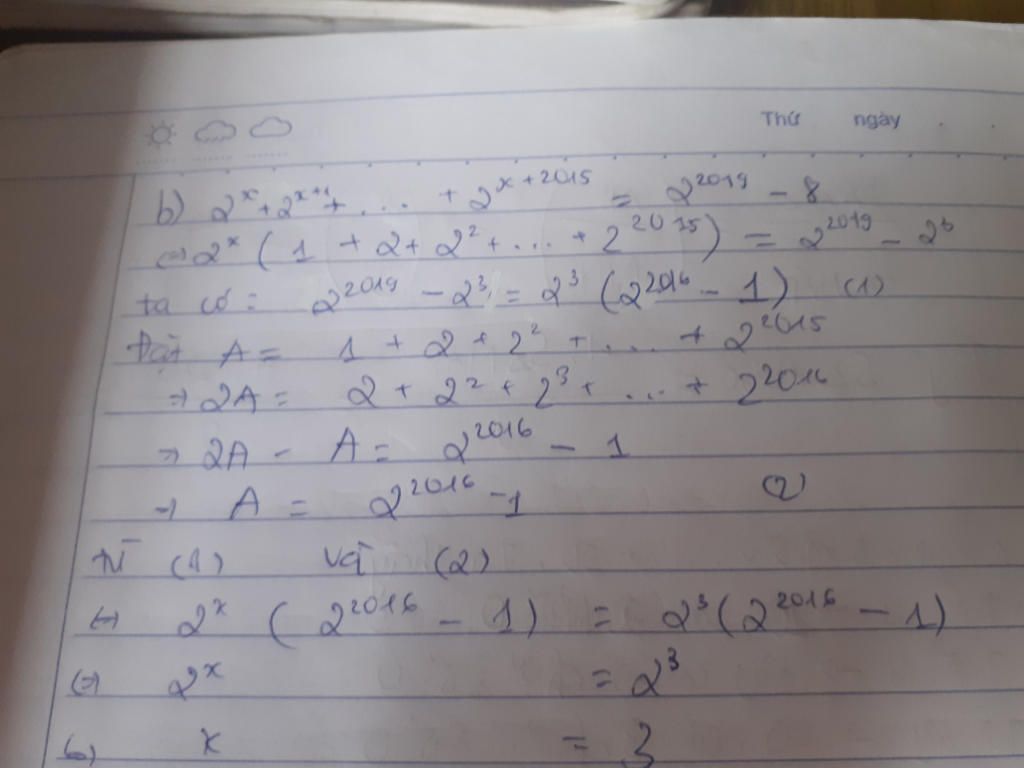 Thứ ngày
b) 2^x + 2^{x+1} + .... + 2^{x+2015} = 2^{2019} - 8
(=) 2^x ( 1 + 2 + 2^2 + ... + 2^{2015} ) = 2^{2019} - 2^3
ta có : 2^{2019} - 2^3 = 2^3 ( 2^{2016} - 1 ) (1)
Đặt A = 1 + 2 + 2^2 + .... + 2^{2015}
=> 2A = 2 + 2^2 + 2^3 + ... + 2^{2016}
=> 2A - A = 2^{2016} - 1
=> A = 2^{2016} - 1 (2)
từ (1) và (2)
(=) 2^x ( 2^{2016} - 1 ) = 2^3 ( 2^{2016} - 1 )
(=) 2^x = 2^3
(=) x = 3